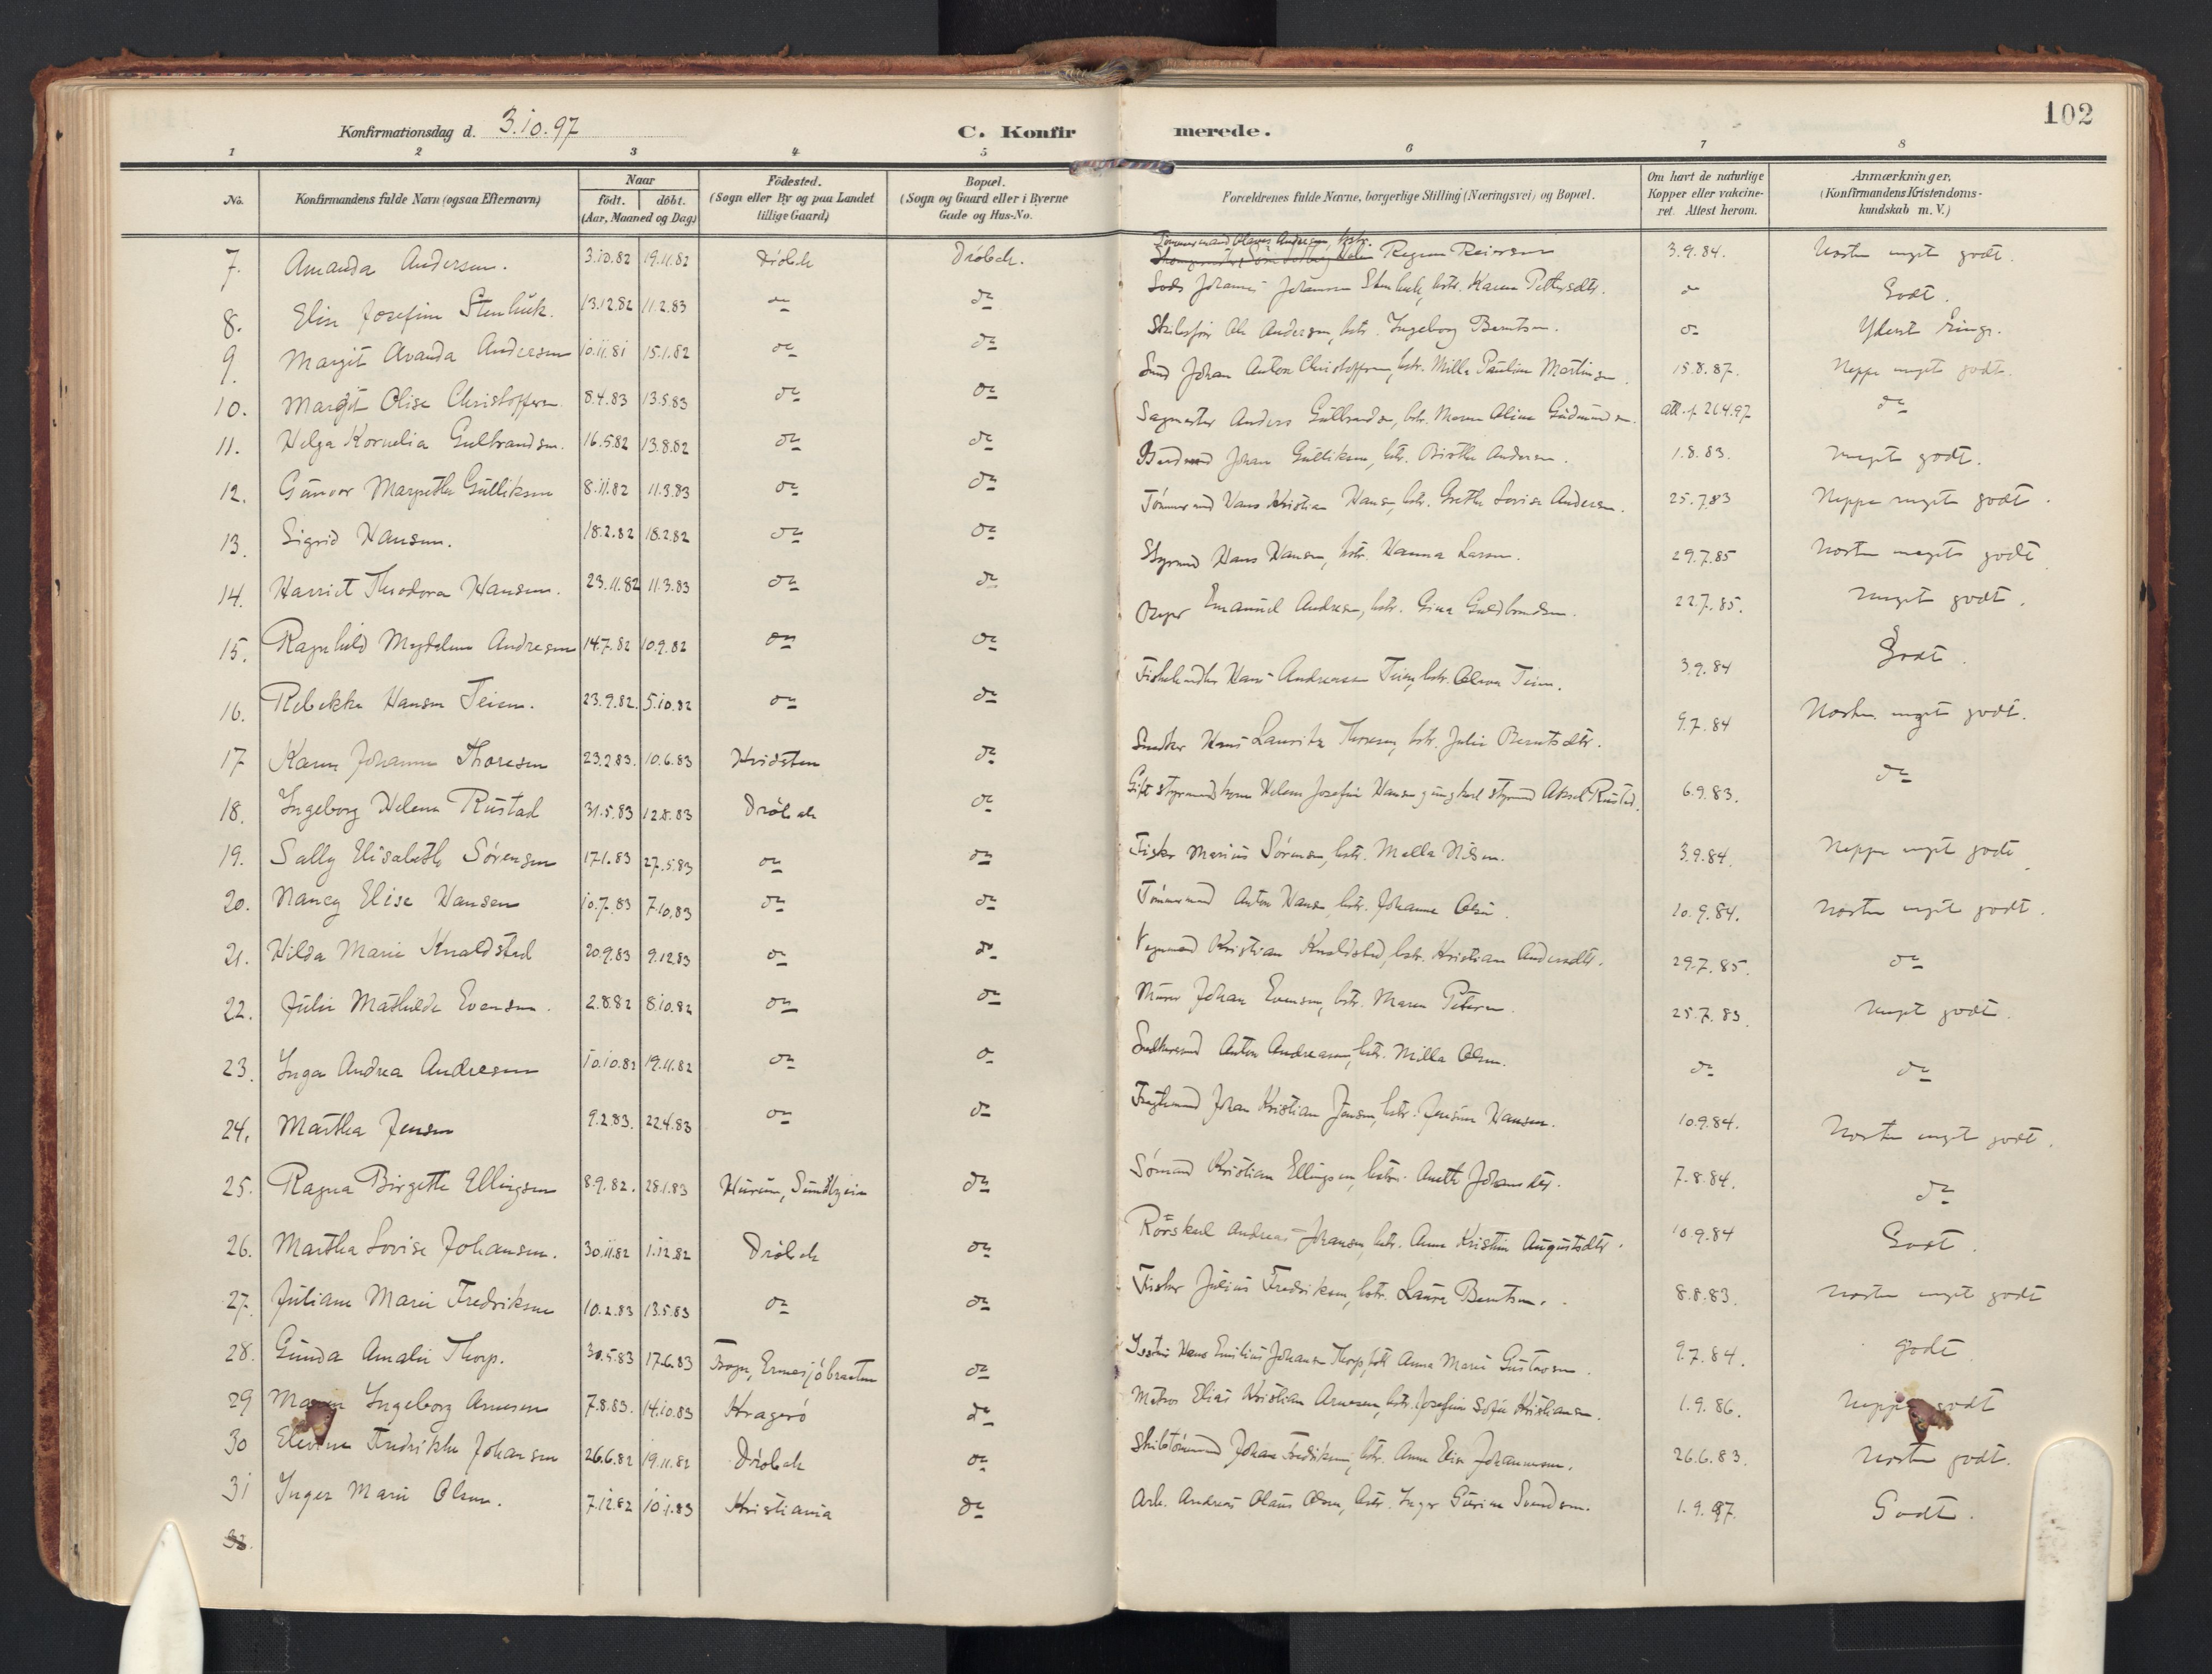 102
Konfirmationsdag d. 3.10.97
C. Konfirmerede.
1 2 3 4 5 6 7 8
No. Konfirmandens fulde Navn (ogsaa Efternavn) Naar födt. döbt. (Aar, Maaned og Dag) Födested. (Sogn eller By og paa Landet tillige Gaard) Bopæl. (Sogn og Gaard eller i Byerne Gade og Hus-No. Forældrenes fulde Navne, borgerlige Stilling (Næringsvei) og Bopæl. Om havt de naturlige Kopper eller vakcineret. Attest herom. Anmærkninger, (Konfirmandens Kristendomskundskab m. V.)
7. Amanda Andersen. 3.10.82 19.11.82 Dröbak Dröbak. Tömmermand Olaus Andersen, hstr. Regine Reiersen 3.9.84. Næsten meget godt.
8. Elise Josefine Stenbuk. 13.12.82 11.2.83 do do Lods Johannes Johansen Stenbuk, hstr. Karen Pettersdtr. do Godt.
9. Margit Avanda Andersen 10.11.81 15.1.82 do do Ole Andersen, hstr. Ingeborg Berntsen. do Yderst ringe.
10. Margit Olise Christoffersen 8.4.83 13.5.83 do do Johan Anton Christoffersen, hstr. Milla Pauline Martinsen. 15.8.87. Neppe meget godt.
11. Helga Kornelia Gulbrandsen. 16.5.82 13.8.82 do do Sagmester Anders Gulbrandsen, hstr. Maren Oline Gudmundsen. att. f. 26.4.97 do
12. Gunvor Margrethe Gulliksen 8.11.82 11.3.83 do do Johan Gulliksen, hstr. Birthe Andersen. 1.8.83. meget godt.
13. Sigrid Hansen. 18.2.82 18.2.82 do do Tömmermand Hans Kristian Hansen, hstr. Grethe Lovise Andersen. 25.7.83 Neppe meget godt.
14. Harriet Theodora Hansen. 23.11.82 11.3.83 do do Styrmand Hans Hansen, hstr. Hanna Larsen. 29.7.85 Næsten meget godt
15. Ragnhild Magdalene Andresen 14.7.82 10.9.82 do do Emanuel Andresen, hstr. Gina Guldbrandsen. 22.7.85. meget godt.
16. Rebekka Hansen Teien. 23.9.82. 5.10.82 do do Fiskehandler Hans Andreasen Teien, hstr. Olava Teien. 3.9.84 Godt.
17 Karen Johanne Thoresen 23.2.83. 10.6.83 Hvidsten do Hans Lauritz Thoresen, hstr. Julie Berntsdtr. 9.7.84 Næsten meget godt.
18. Ingeborg Helena Rustad 31.5.83 12.8.83 Dröbak do Gift Helene Josefine Hansen Styrmd Aksel Rustad. 6.9.83. do
19. Sally Elisabeth Sörensen 17.1.83 27.5.83 do do Fisker Marius Sörensen, hstr. Malla Nilsen. 3.9.84. Neppe meget godt
20. Nancy Elise Hansen 10.7.83 7.10.83 do do Tömmermand Anton Hansen, hstr. Johanne Olsen. 10.9.84. Næsten meget godt.
21. Hilda Marie Knaldstad 20.9.83 9.12.83 do do Vognmand Kristian Knaldstad, hstr. Kristiane Andersdtr. 29.7.85. do
22. Julie Mathilde Evensen. 2.8.82 8.10.82 do do Murer Johan Evensen, hstr. Maren Petersen. 25.7.83. Meget godt.
23. Inga Andrea Andresen 10.10.82 19.11.82 do do Anton Andreasen, hstr. Milla Olsen. do do
24. Martha Jensen 9.2.83. 22.4.83 do do Johan Kristian Jensen, hstr. Jensine Hansen. 10.9.84. Næsten meget godt.
25. Ragna Birgitte Ellingsen 8.9.82. 28.1.83 Hurum, do Sömand Kristian Ellingsen, hstr. Anette Johansdtr. 7.8.84. do
26. Martha Lovise Johansen. 30.11.82 1.12.82 Dröbak do Andreas Johansen, hstr. Anne Kristine Augustsdtr. 10.9.84 Godt.
27. Juliane Marie Fredriksen 10.2.83 13.5.83 do do Fisker Julius Fredriksen, hstr. Laura Berntsen. 8.8.83. Næsten meget godt
28. Gunda Amalie Thorp. 30.5.83 17.6.83 Frogn, Ermesjöbraaten do Hans Emilius Johansen Thorp, hstr. Anna Marie Gustavsen. 9.7.84. godt
29 Maren Ingeborg Arnesen 7.8.83. 14.10.83 Kragerö do Matros Elias Kristian Arnesen, hstr. Josefine Sofie Kristiansen. 1.9.86. Neppe godt
30 Fredrikke Johansen 26.6.82 19.11.82 Dröbak do Skibstömmermand Johan Fredriksen, hstr. Anne Elise Johannesen. 26.6.83. Næsten godt.
31 Inger Marie Olsen. 7.12.82 10.1.83 Kristiania do Arb. Andreas Olaus Olsen, hstr. Inger Gurine Svendsen. 1.9.97. Godt.
32.